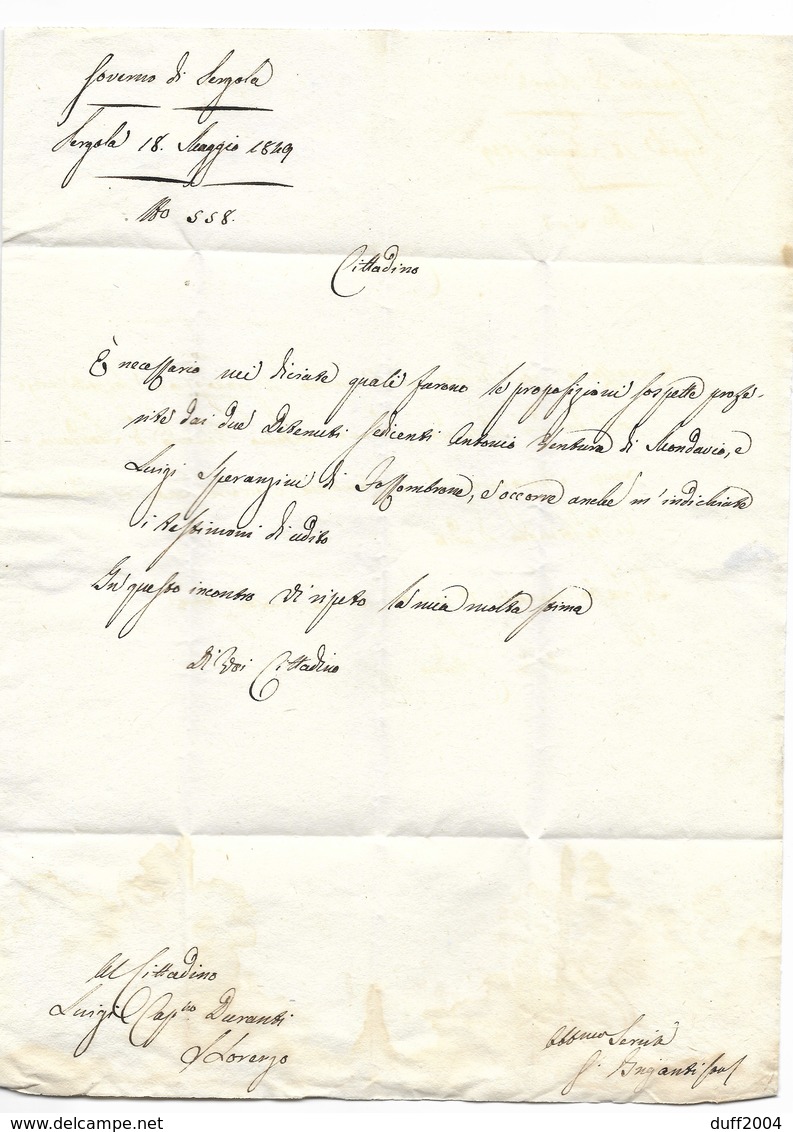 Governo di Pergola
Pergola 18. Maggio 1849
No 558.
Cittadino
È necessario mi diciate quali furono le proposizioni sospette profe-
rite dai due Detenuti sedicenti Antonio Ventura di Mondavio, e
Luigi Speranzini di Fossombrone, e occorre anche m'indichiate
i testimoni di udito
In questo incontro Vi ripeto la mia molta stima
Di Voi Cittadino
Al Cittadino
Luigi Capno Duranti
S Lorenzo
Servite
duff2004